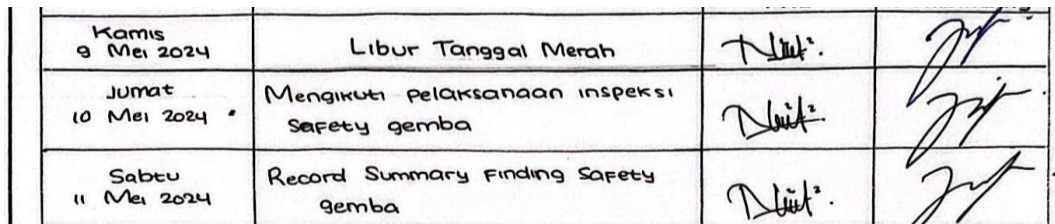 Kamis
9 Mei 2024
Libur Tanggal Merah
Jumat
10 Mei 2024
Mengikuti pelaksanaan inspeksi
Safety gemba
Sabtu
11 Mei 2024
Record Summary Finding Safety
gemba